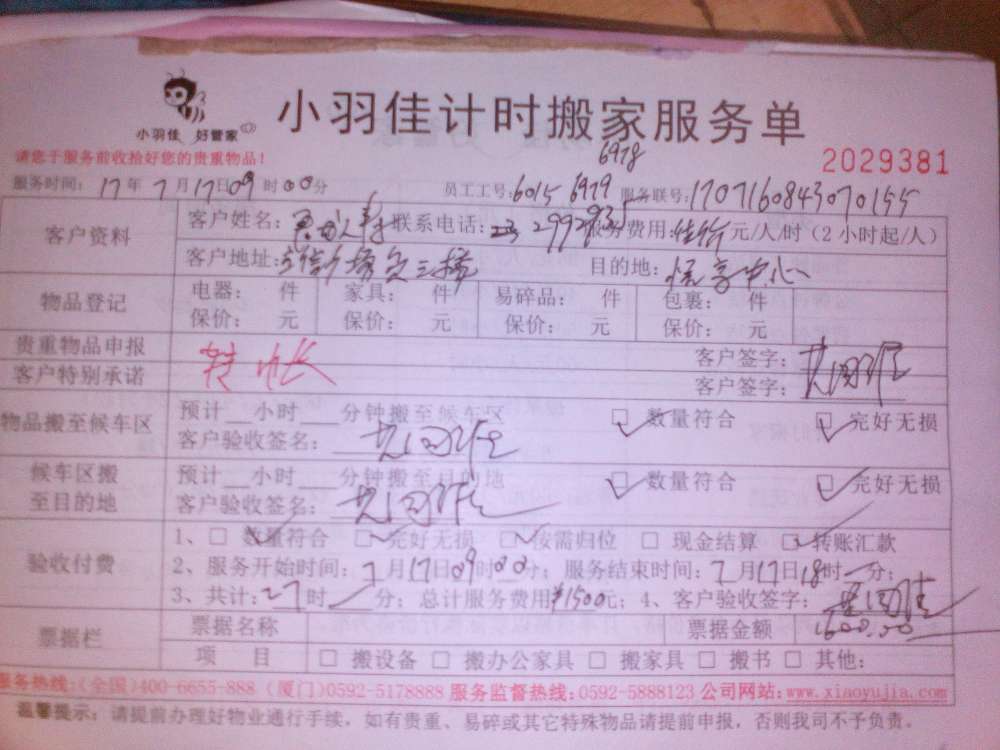 小羽佳计时搬家服务单
小羽佳 好管家
6978
请您于服务前收拾好您的贵重物品! 2029381
服务时间: 17年7月17日09时00分 员工工号: 6015 6979 服务联号: 170716084307 0155
客户资料 客户姓名: 联系电话: 服务费用: 元/人/时 (2小时起/人)
客户地址: 目的地: 中心
物品登记 电器: 件 家具: 件 易碎品: 件 包裹: 件
保价: 元 保价: 元 保价: 元 保价: 元
贵重物品申报 转帐 客户签字:
客户特别承诺 客户签字:
物品搬至候车区 预计 小时 分钟搬至候车区 数量符合 完好无损
客户验收签名:
候车区搬至目的地 预计 小时 分钟搬至目的地 数量符合 完好无损
客户验收签名:
验收付费 1、□ 数量符合 □ 完好无损 □ 按需归位 □ 现金结算 □ 转账汇款
2、服务开始时间: 7月17日09时00分; 服务结束时间: 7月17日18时 分;
3、共计: 27时 分; 总计服务费用¥1500元; 4、客户验收签字:
票据栏 票据名称 票据金额 1600.00
项 目 □ 搬设备 □ 搬办公家具 □ 搬家具 □ 搬书 □ 其他:
服务热线:(全国)400-6655-888 (厦门)0592-5178888 服务监督热线:0592-5888123 公司网站:www.xiaoyujia.com
温馨提示: 请提前办理好物业通行手续, 如有贵重、易碎或其它特殊物品请提前申报, 否则我司不予负责。